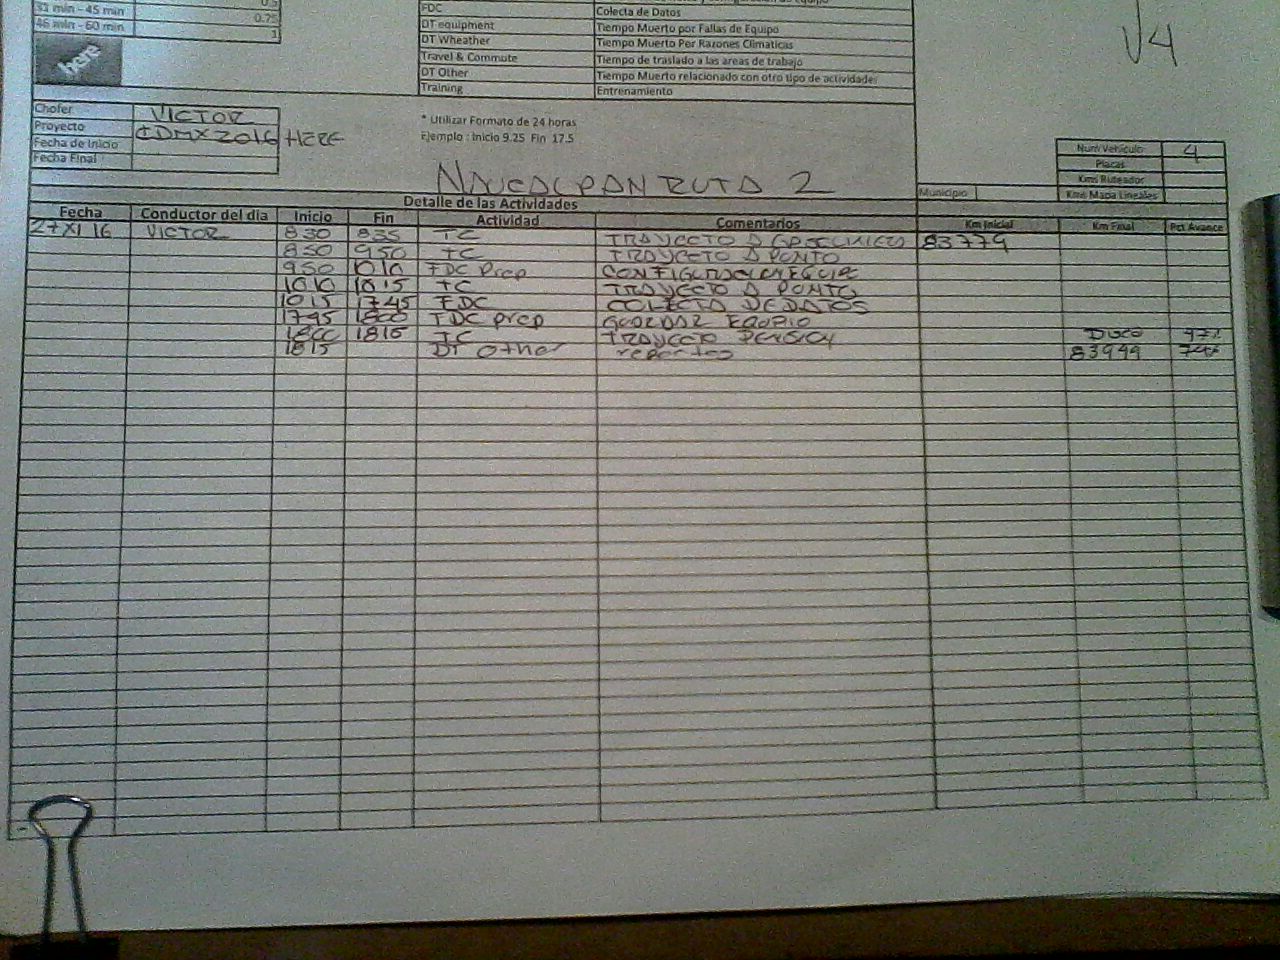 31 min - 45 min 0.5
46 min - 60 min 0.75
1
here
FDC Colecta de Datos
DT equipment Tiempo Muerto por Fallas de Equipo
DT Wheather Tiempo Muerto Per Razones Climaticas
Travel & Commute Tiempo de traslado a las areas de trabajo
DT Other Tiempo Muerto relacionado con otro tipo de actividades
Training Entrenamiento
V4
Chofer VICTOR
Proyecto CDMX2016 HERE
Fecha de Inicio
Fecha Final
* Utilizar Formato de 24 horas
Ejemplo : Inicio 9.25 Fin 17.5
Num Vehiculo 4
Placas
Kms Ruteador
Kms Mapa Lineales
NAUCALPAN RUTA 2
Municipio
Detalle de las Actividades
Fecha Conductor del dia Inicio Fin Actividad Comentarios Km Inicial Km Final Pct Avance
27 XI 16 VICTOR 830 835 TC TRAYECTO A 83779
850 950 TC TRAYECTO A PONTO
950 1010 FDC Prep
1010 1015 TC TRAYECTO A PONTO
1015 1745 FDC COLECTA DE DATOS
1745 1800 FDC prep GUARDAR EQUIPO
1800 1815 TC TRAYECTO PENSION
1815 DT Other reportes 83944